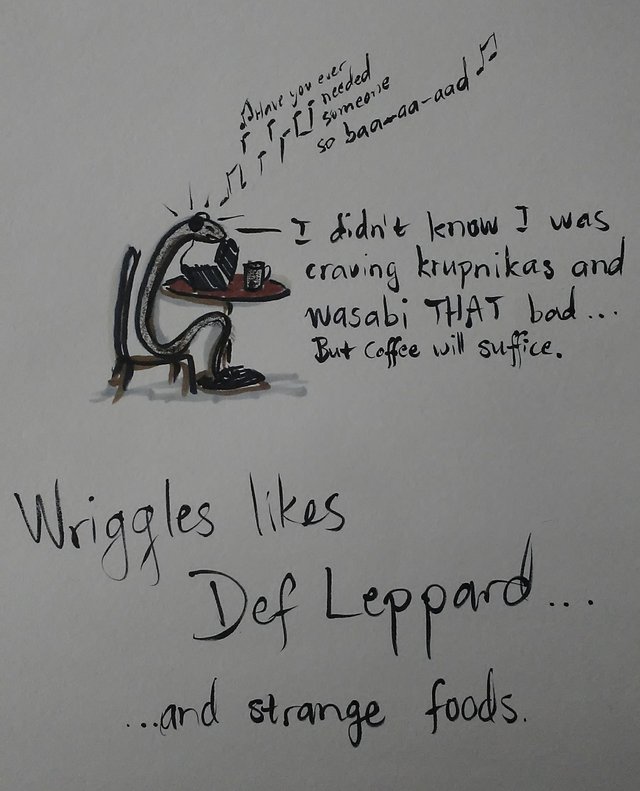 Have you ever
needed
someone
so baa-aa-aad
I didn't know I was
craving krupnikas and
wasabi THAT bad...
But coffee will suffice.
Wriggles likes
Def Leppard...
...and strange foods.